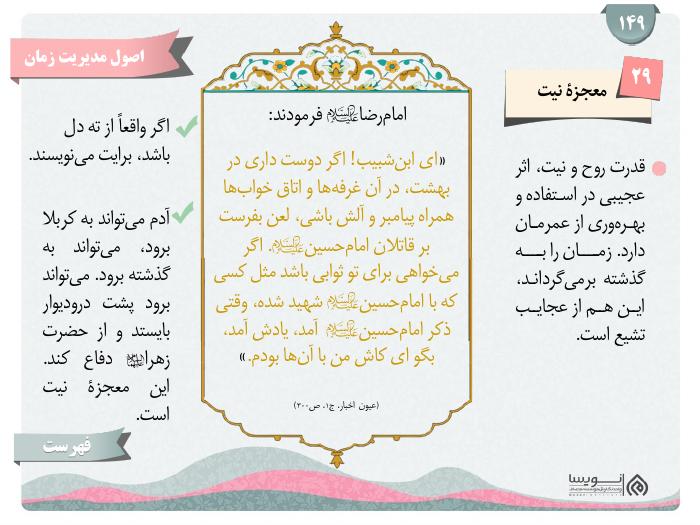 ۱۴۹
اصول مدیریت زمان
۲۹
معجزهٔ نیت
قدرت روح و نیت، اثر
عجیبی در استفاده و
بهره‌وری از عمرمان
دارد. زمــان را بــه
گذشته برمی‌گرداند،
ایـن هـم از عجایـب
تشیع است.
امام‌رضاعلیه‌السلام فرمودند:
«ای ابن‌شبیب! اگر دوست داری در
بهشت، در آن غرفه‌ها و اتاق خواب‌ها
همراه پیامبر و آلش باشی، لعن بفرست
بر قاتلان امام‌حسینعلیه‌السلام. اگر
می‌خواهی برای تو ثوابی باشد مثل کسی
که با امام‌حسینعلیه‌السلام شهید شده، وقتی
ذکر امام‌حسینعلیه‌السلام آمد، یادش آمد،
بگو ای کاش من با آن‌ها بودم.»
(عیون اخبار، ج۱، ص۳۰۰)
اگر واقعاً از ته دل
باشد، برایت می‌نویسند.
آدم می‌تواند به کربلا
برود، می‌تواند به
گذشته برود. می‌تواند
برود پشت درودیوار
بایستد و از حضرت
زهرا دفاع کند.
این معجزهٔ نیت
است.
فهرست
انـویسا